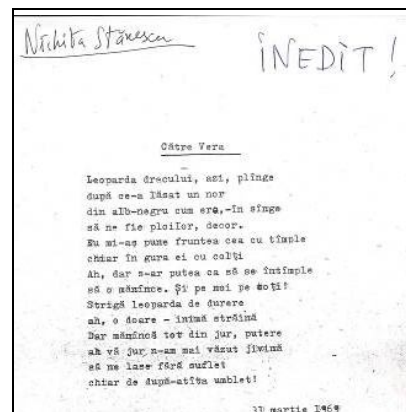 Nichita Stănescu
INEDIT!
Către Vera
Leoparda dracului, azi, plînge
după ce-a lăsat un nor
din alb-negru cum era,-în sînge
să ne fie ploilor, decor.
Eu mi-aș pune fruntea cea cu tîmple
chiar în gura ei cu colți
Ah, dar s-ar putea ca să se întîmple
să o mănînce. Și pe noi pe toți!
Strigă leoparda de durere
ah, o doare - inimă străină
Dar mănîncă tot din jur, putere
ah vă jur n-am mai văzut jivină
să ne lase fără suflet
chiar de după-atîta umblet!
31 martie 1969